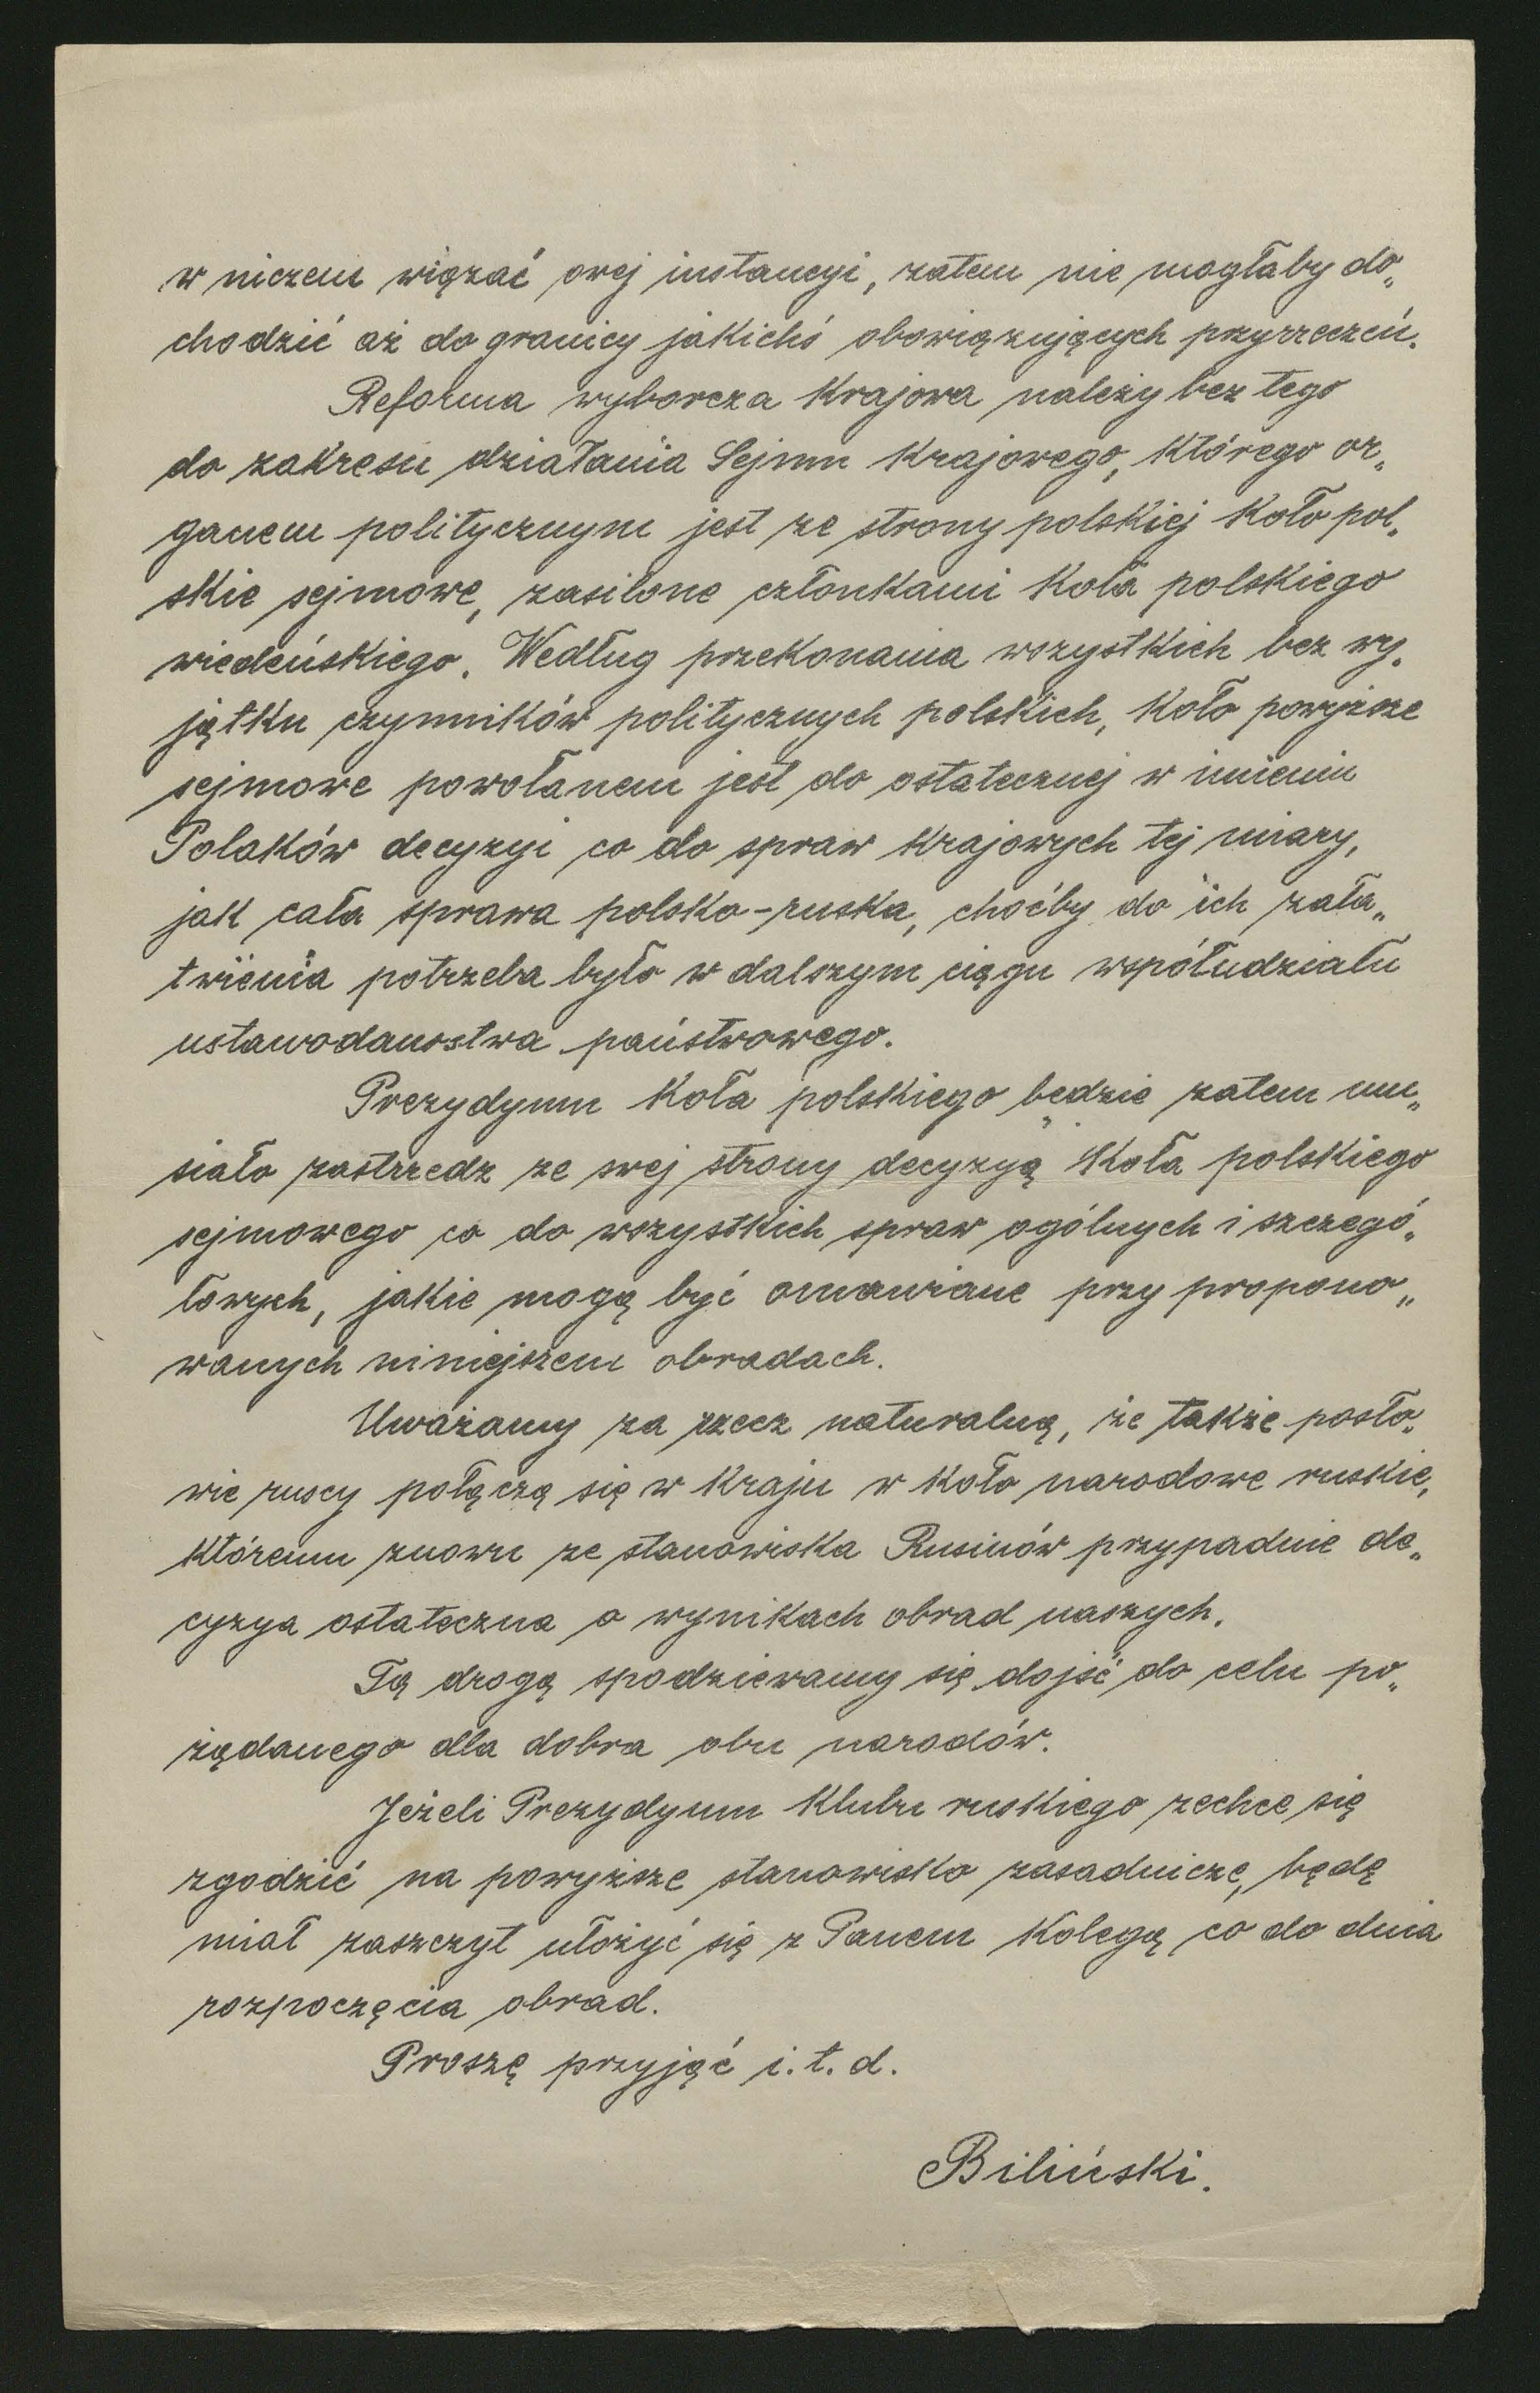 w niczem wiązać owej instancyi, zatem nie mogłaby do„
chodzić aż do granicy jakichś obowiązujących przyrzeczeń.
Reforma wyborcza krajowa należy bez tego
do zakresu działania Sejmu krajowego, którego or„
ganem politycznym jest ze strony polskiej Koło pol„
skie sejmowe, zasilone członkami Koła polskiego
wiedeńskiego. Według przekonania wszystkich bez wy„
jątku czynników politycznych polskich, Koło powyższe
sejmowe powołanem jest do ostatecznej w imieniu
Polaków decyzyi co do spraw krajowych tej miary,
jak cała sprawa polsko-ruska, choćby do ich zała„
twienia potrzeba było w dalszym ciągu współudziału
ustawodawstwa państwowego.
Prezydyum Koła polskiego będzie zatem mu„
siało zastrzedz ze swej strony decyzyą Koła polskiego
sejmowego co do wszystkich spraw ogólnych i szczegó„
łowych, jakie mogą być omawiane przy propono„
wanych niniejszem obradach.
Uważamy za rzecz naturalną, że także posło„
wie ruscy połączą się w kraju w Koło narodowe ruskie,
któremu znowu ze stanowiska Rusinów przypadnie de„
cyzya ostateczna o wynikach obrad naszych.
Tą drogą spodziewamy się dojść do celu po„
żądanego dla dobra obu narodów.
Jeżeli Prezydyum Klubu ruskiego zechce się
zgodzić na powyższe stanowisko zasadnicze, będę
miał zaszczyt ułożyć się z Panem Kolegą co do dnia
rozpoczęcia obrad.
Proszę przyjąć i. t. d.
Biliński.